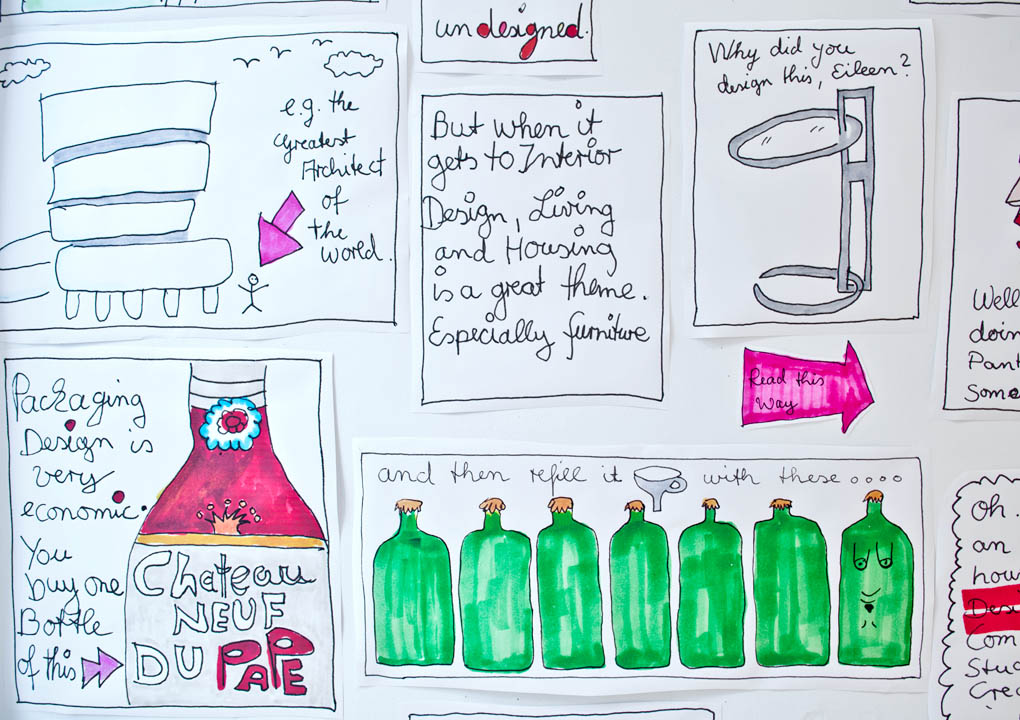 undesigned.
e.g. the
Greatest
Architect
of
the
world.
But when it
gets to Interior
Design, Living
and Housing
is a great theme.
Especially furniture
Why did you
design this, Eileen?
Read this
Way
Well
doin
Pant
Some
Packaging
Design is
very
economic.
You
buy one
Bottle
of this
Chateau
NEUF
DU PAPE
and then refill it with these oooo
Oh.
an
hou
Desi
Com
Stud
Crea